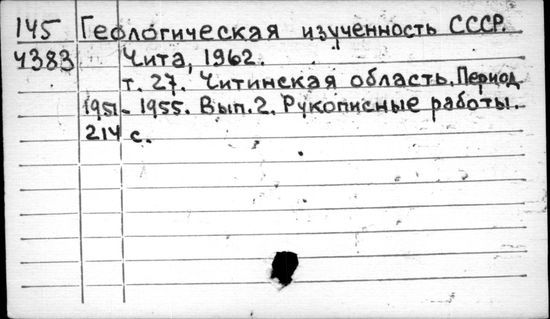 145 Геологическая изученность СССР.
4383 Чита, 1962.
т. 27. Читинская область. Период
1951-1955. Вып. 2. Рукописные работы.
214 с.